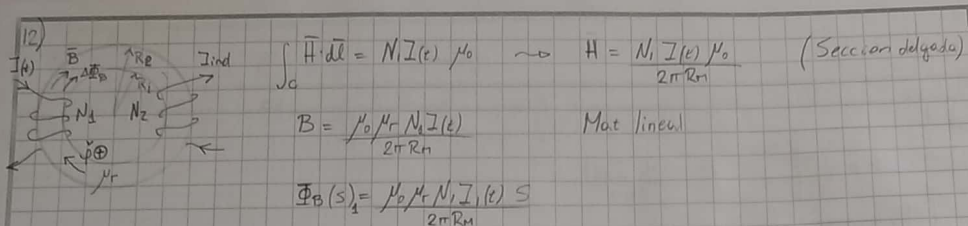 12)
I(t) B̄ ΔΦ_B Re Ri Iind
N1 N2
φ̌ ⊕
μr
∫_C H̄·dl̄ = N₁I(t) μ₀ ⤳ H = N₁ I(t) μ₀ / 2π Rm (Seccion delgada)
B = μ₀ μr N₁ I(t) / 2π Rm Mat lineal
Φ_B(s)₁ = μ₀ μr N₁ I₁(t) S / 2π Rm